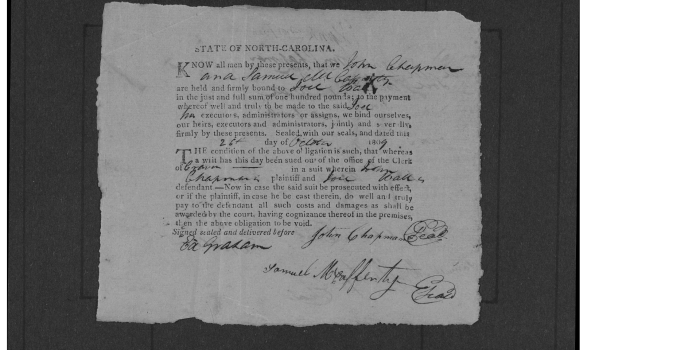 STATE OF NORTH-CAROLINA.
KNOW all men by these presents, that we John Chapman
and Samuel
are held and firmly bound to
in the just and full sum of one hundred pounds; to the payment
whereof well and truly to be made to the said
his executors, administrators or assigns, we bind ourselves,
our heirs, executors and administrators, jointly and severally,
firmly by these presents. Sealed with our seals, and dated this
26 day of October 1809
THE condition of the above obligation is such, that whereas
a writ has this day been sued out of the office of the Clerk
of Craven in a suit wherein John
Chapman is plaintiff and
defendant.—Now in case the said suit be prosecuted with effect,
or if the plaintiff, in case he be cast therein, do well and truly
pay to the defendant all such costs and damages as shall be
awarded by the court, having cognizance thereof in the premises,
then the above obligation to be void.
Signed sealed and delivered before
John Chapman Seal
Ed Graham
Samuel Seal